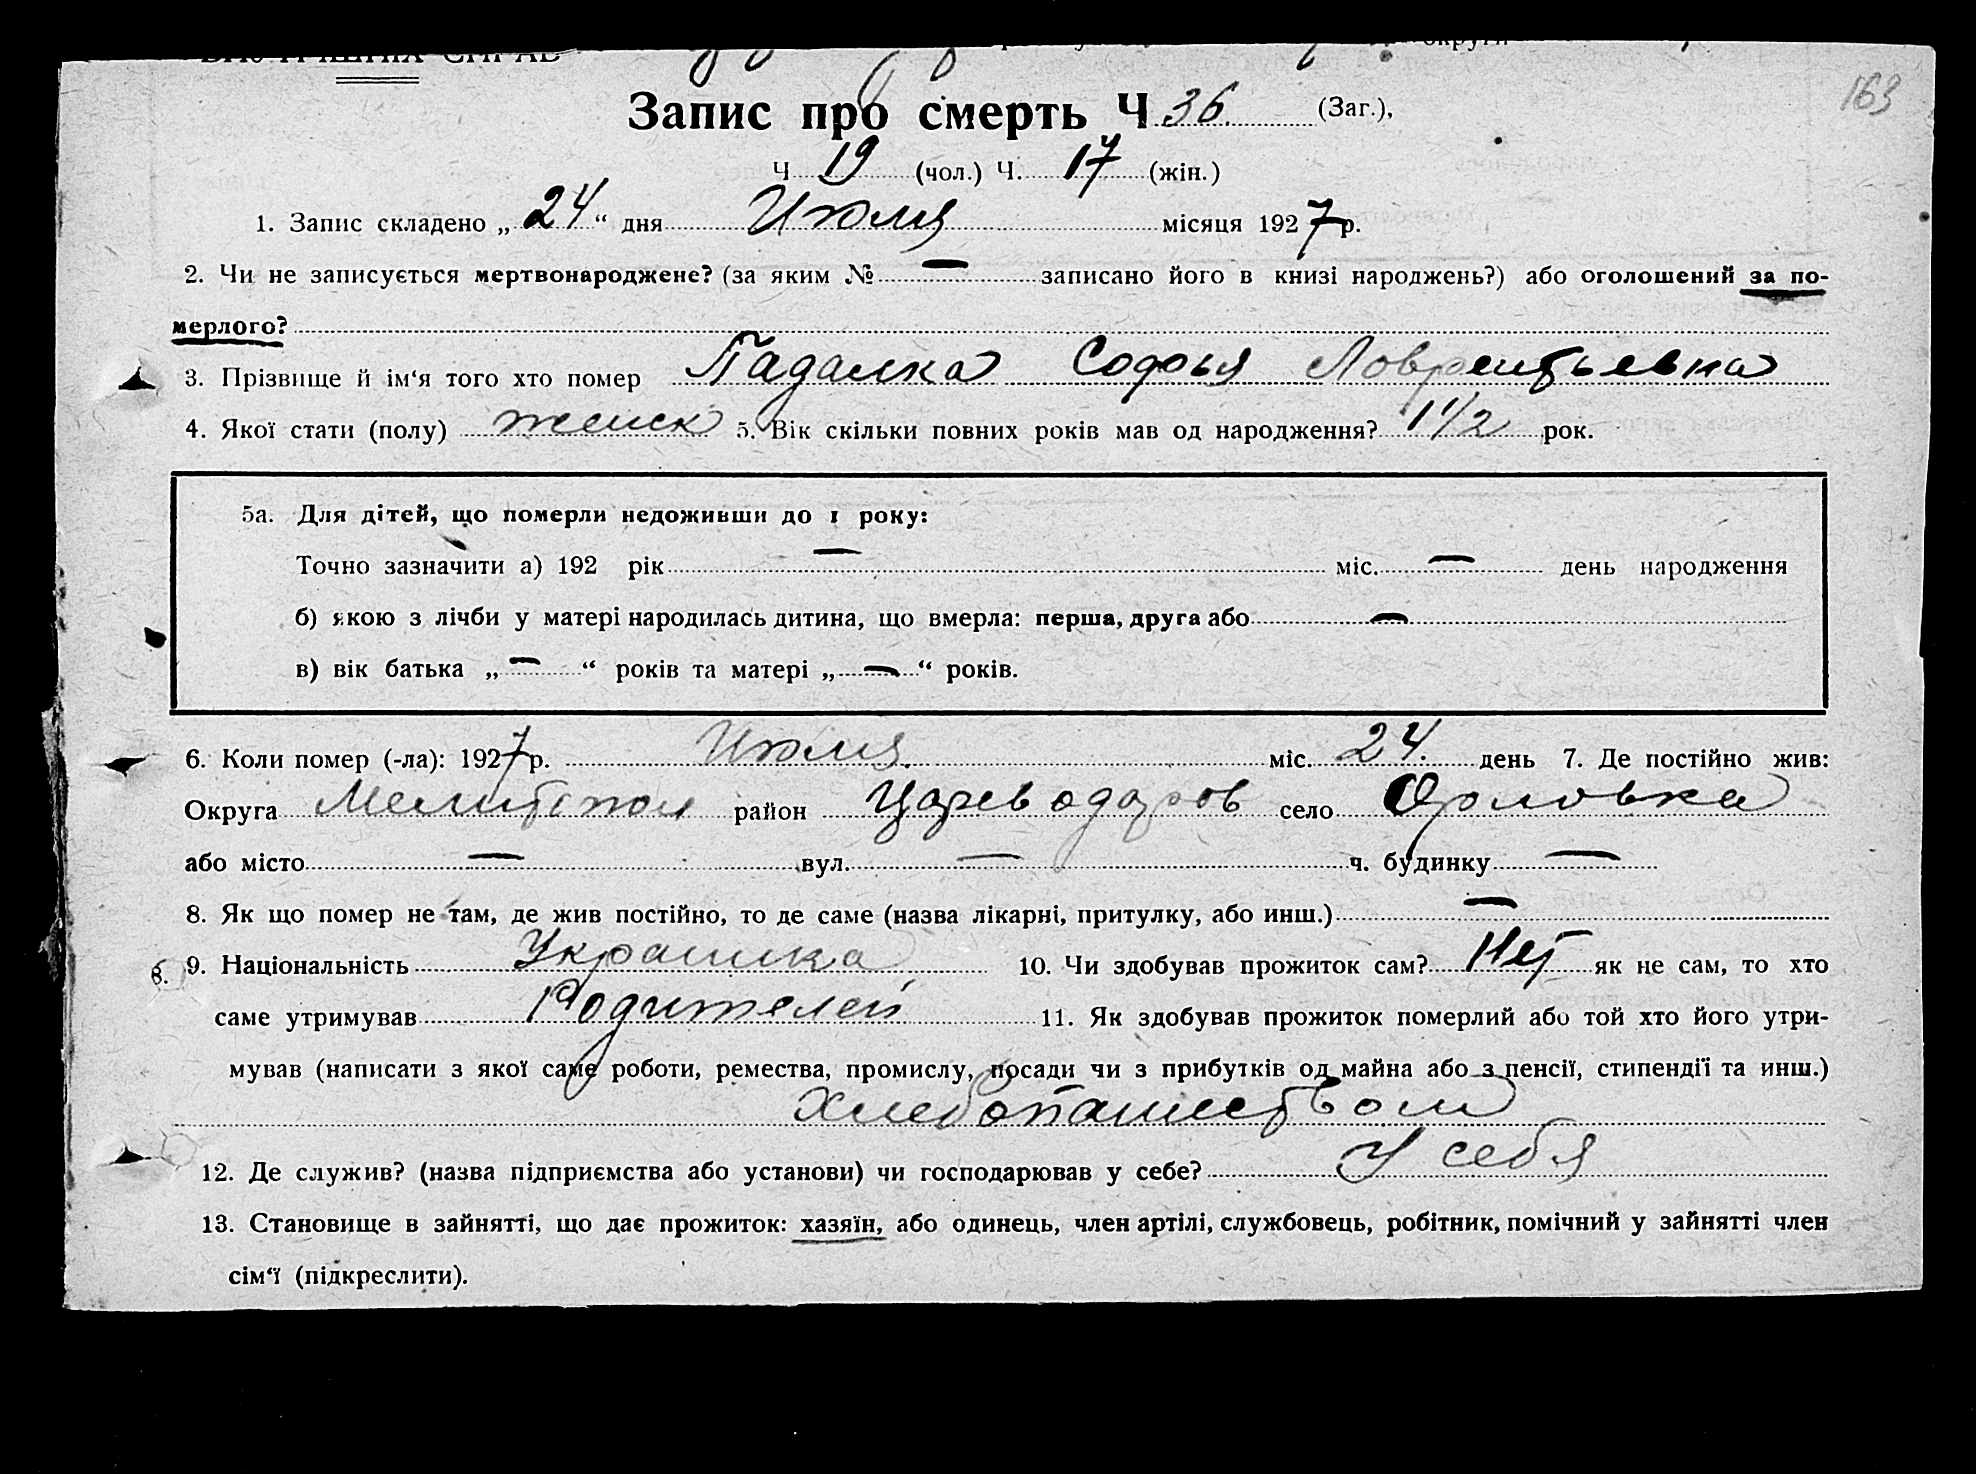 163
Запис про смерть Ч 36 (Заг.),
Ч 19 (чол.) Ч. 17 (жін.)
1. Запис складено „ 24 “ дня Июля місяця 1927 р.
2. Чи не записується мертвонароджене? (за яким № — записано його в книзі народжень?) або оголошений за по-
мерлого?
3. Прізвище й ім‘я того хто помер Падалка Софья Лаврентьевна
4. Якої стати (полу) женск 5. Вік скільки повних років мав од народження? 1 1/2 рок.
5а. Для дітей, що померли недоживши до 1 року:
Точно зазначити а) 192 рік — міс. — день народження
б) якою з лічби у матері народилась дитина, що вмерла: перша, друга або —
в) вік батька „ — “ років та матері „ — “ років.
6. Коли помер (-ла): 1927 р. Июля міс. 24. день 7. Де постійно жив:
Округа Мелитопол район Цареводаров село Орловка
або місто — вул. — ч. будинку —
8. Як що помер не там, де жив постійно, то де саме (назва лікарні, притулку, або инш.) —
9. Національність Украинка 10. Чи здобував прожиток сам? Нет як не сам, то хто
саме утримував Родителей 11. Як здобував прожиток померлий або той хто його утри-
мував (написати з якої саме роботи, ремества, промислу, посади чи з прибутків од майна або з пенсії, стипендії та инш.)
Хлебопашеством
12. Де служив? (назва підприємства або установи) чи господарював у себе? У себя
13. Становище в зайнятті, що дає прожиток: хазяїн, або одинець, член артілі, службовець, робітник, помічний у зайнятті член
сім‘ї (підкреслити).